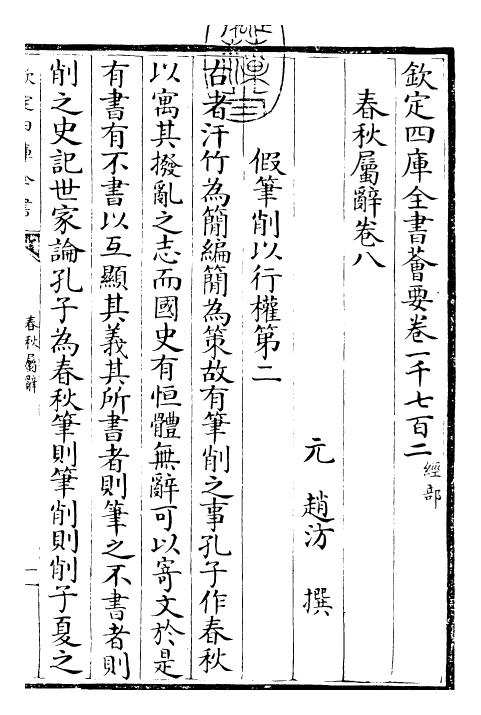 欽定四庫全書薈要卷一千七百二 經部
春秋屬辭卷八
元 趙汸 撰
假筆削以行權第二
古者汗竹為簡編簡為策故有筆削之事孔子作春秋
以寓其撥亂之志而國史有恒體無辭可以寄文於是
有書有不書以互顯其義其所書者則筆之不書者則
削之史記世家論孔子為春秋筆則筆削則削子夏之
欽定四庫全書
春秋屬辭
一